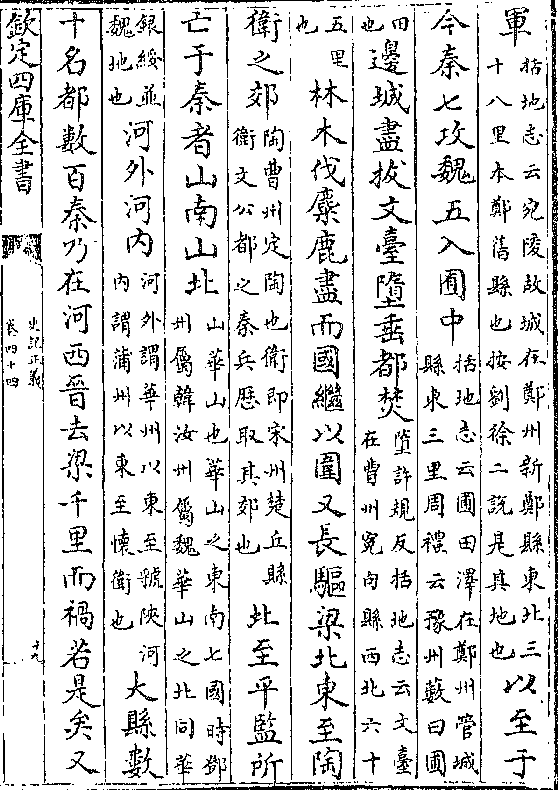 軍括地志云宛陵故城在鄭州新鄭縣東北三十八里本鄭舊縣也按劉徐二說是其地也以至于
今秦七攻魏五入囿中括地志云圃田澤在鄭州管城縣東三里周禮云豫州藪曰圃
田也邊城盡拔文臺墮垂都焚墮許規反括地志云文臺在曹州冤句縣西北六十
五里也林木伐麋鹿盡而國繼以圍又長驅梁北東至陶
衛之郊陶曹州定陶也衛即宋州楚丘縣衛文公都之秦兵歷取其郊也北至平監所
亡于秦者山南山北山華山也華山之東南七國時鄧州屬韓汝州屬魏華山之北同華
銀綏並魏地也河外河內河外謂華州以東至虢陝河內謂蒲州以東至懷衛也大縣數
十名都數百秦乃在河西晉去梁千里而禍若是矣又
欽定四庫全書
史記正義
卷四十四
十九